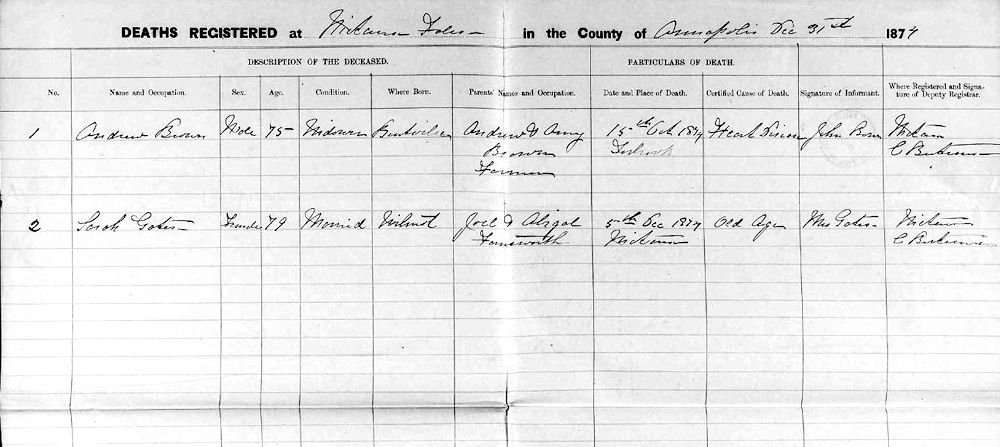 DEATHS REGISTERED at in the County of Annapolis Dec 31st 1874
DESCRIPTION OF THE DECEASED. PARTICULARS OF DEATH.
No. Name and Occupation. Sex. Age. Condition. Where Born. Parents' Names and Occupation. Date and Place of Death. Certified Cause of Death. Signature of Informant. Where Registered and Signature of Deputy Registrar.
1 Andrew Brown Male 75 Andrew & Amy Brown Farmer 15th Oct 1874 Heart Disease John Brown
2 Sarah Gates Female 79 Married Wilmot Joel & Abigal Farnsworth 5th Dec 1874 Old Age Wm Gates